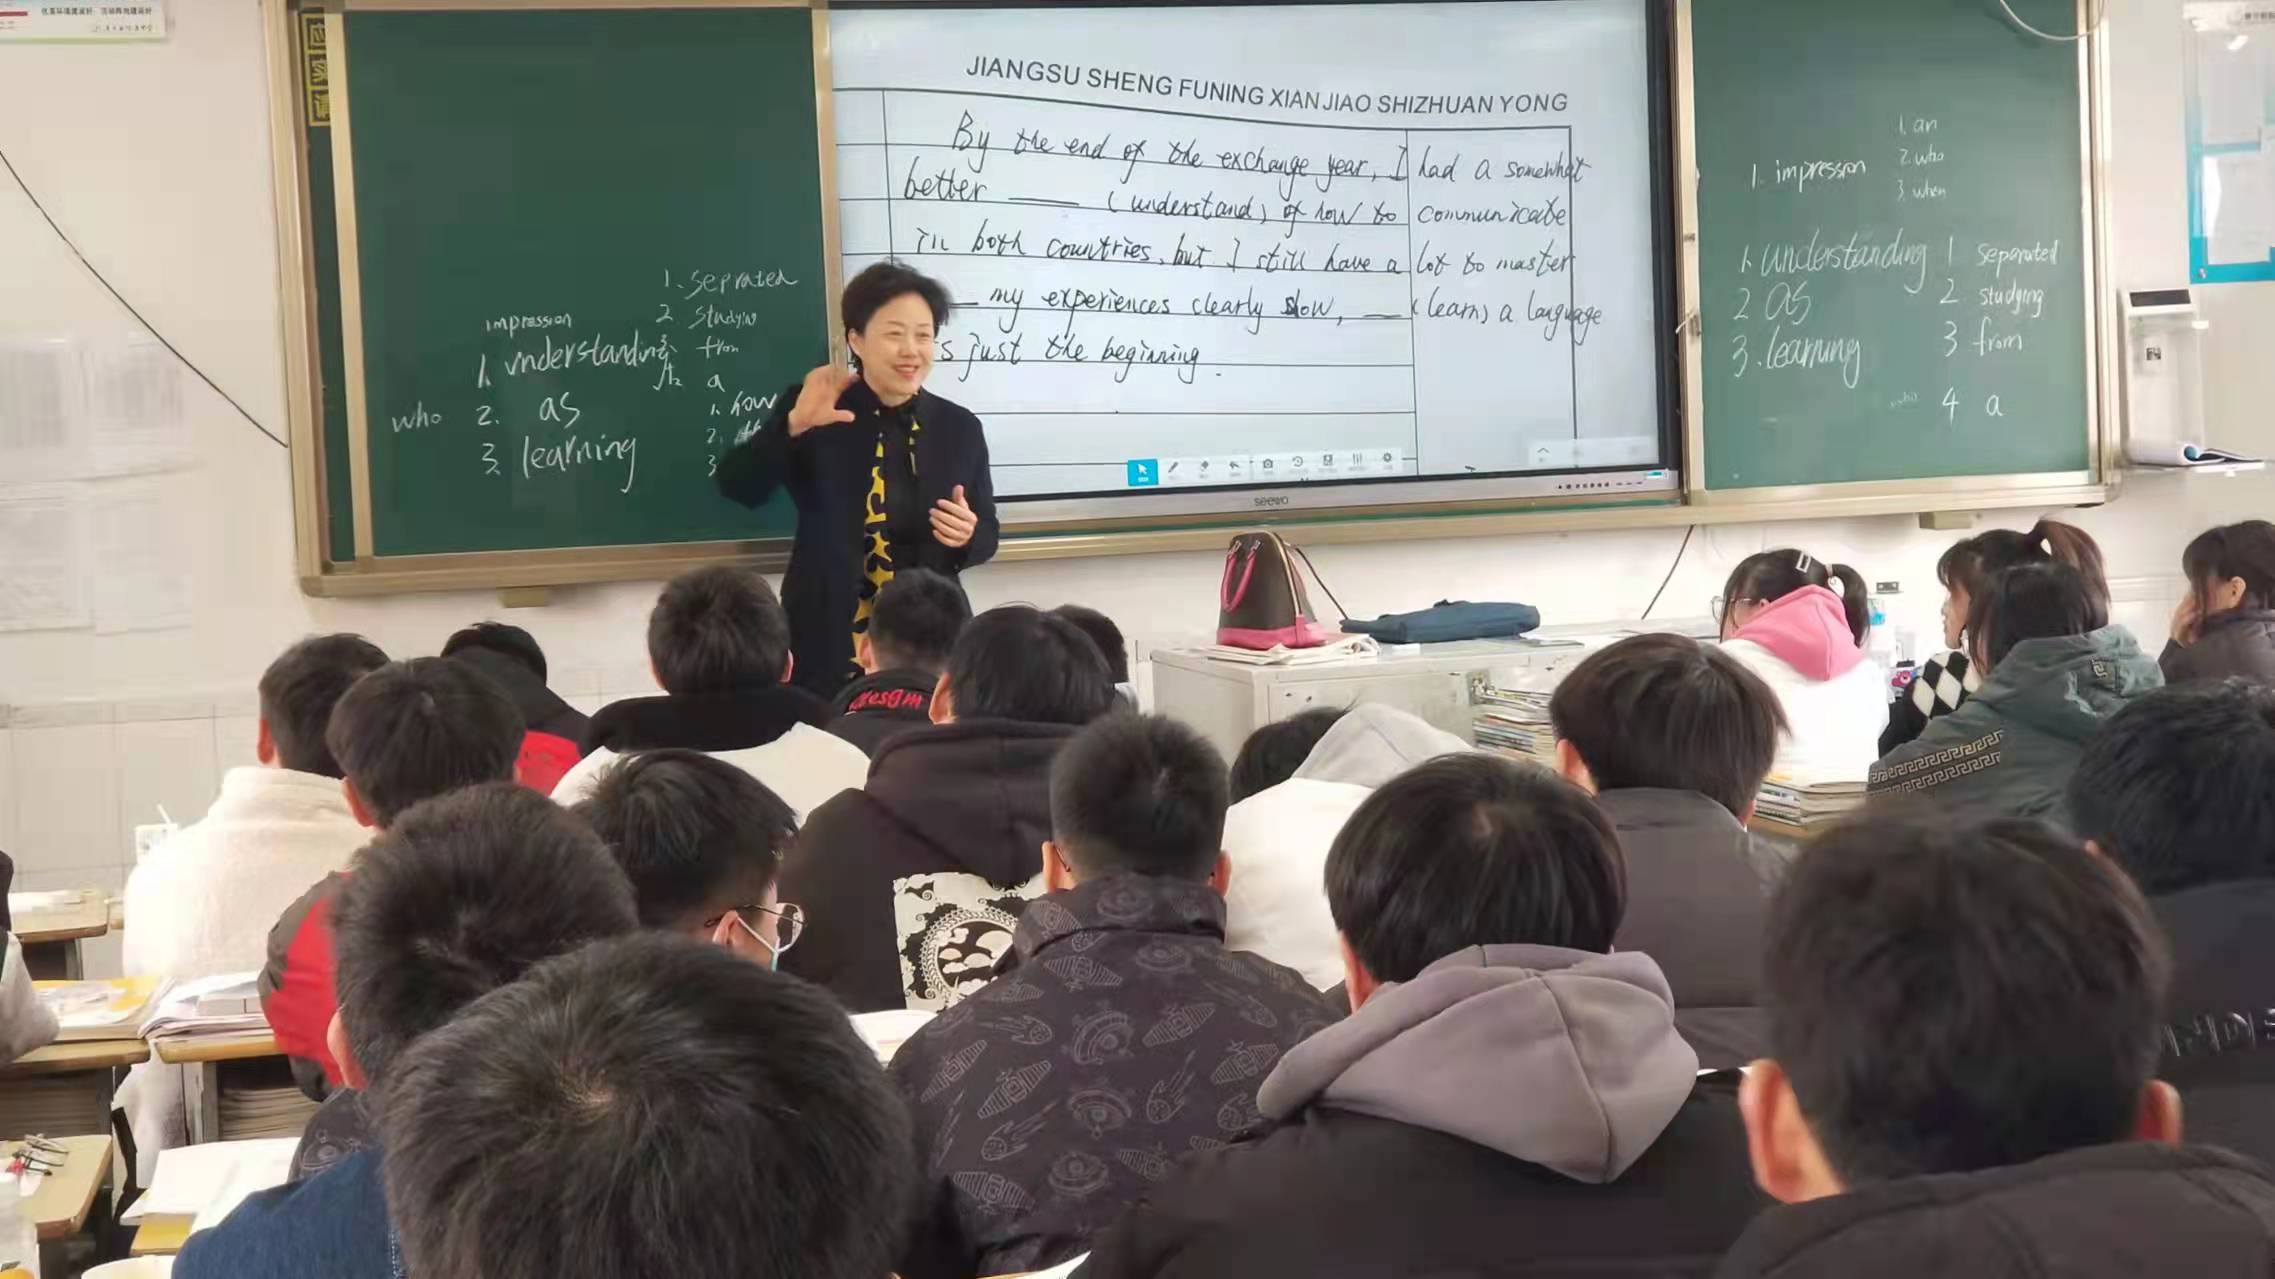 应
实
JIANGSU SHENG FUNING XIAN JIAO SHIZHUAN YONG
By the end of the exchange year, I had a somewhat
better ____ (understand) of how to communicate
in both countries, but I still have a lot to master
__ my experiences clearly show, __ (learn) a language
s just the beginning.
seewo
1. seprated
2 studying
3. from
a
impression
1. understanding
2. as
3. learning
who
1. how
2.
3
1. impression
1. an
2. who
3. when
1. understanding
2 as
3. learning
1 separated
2 studying
3 from
4 a
esgm